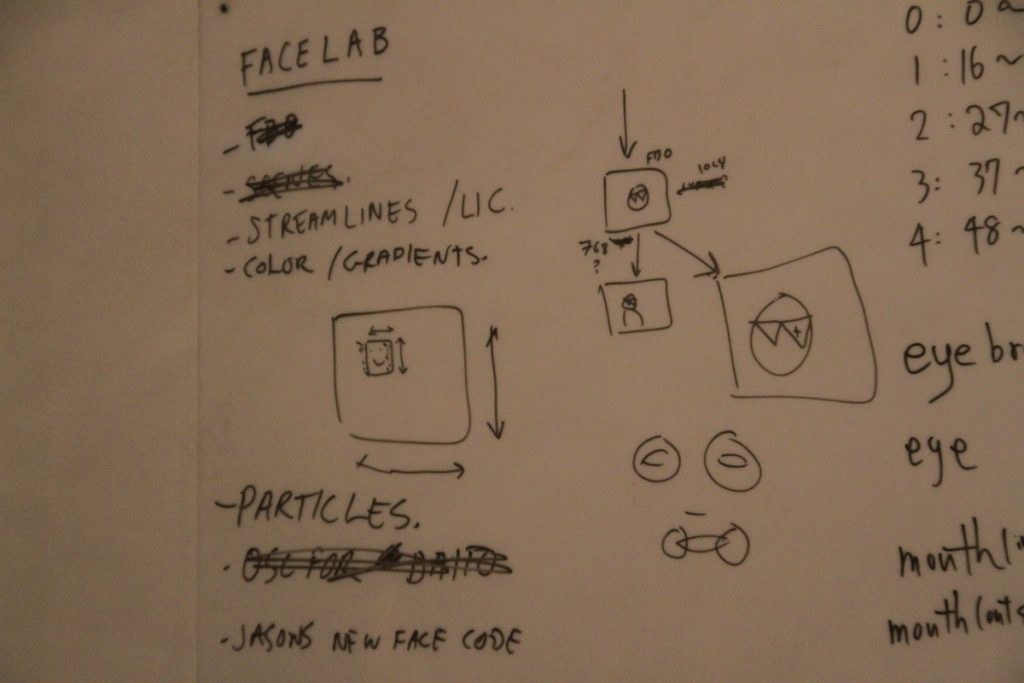 FACE LAB
- FBO
- SCENES.
- STREAMLINES / LIC.
- COLOR / GRADIENTS.
- PARTICLES.
- OSC FOR DAITO
- JASONS NEW FACE CODE
FBO
1024
768
?
0 : 0~
1 : 16~
2 : 27~
3 : 37~
4 : 48~
eye br
eye
mouth (in
mouth (outs